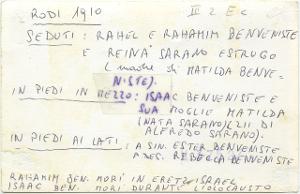 RODI 1910
III 2 E c
SEDUTI: RAHEL E RAHAMIM BENVENISTE
E REINA SARANO ESTRUGO
(madre di MATILDA BENVE-
NISTE).
IN PIEDI IN MEZZO: ISAAC BENVENISTE E
SUA MOGLIE MATILDA
(NATA SARANO, ZII DI
ALFREDO SARANO).
IN PIEDI AI LATI: A SIN. ESTER BENVENISTE
A DES. REBECCA BENVENISTE
RAHAMIM BEN. MORÌ IN ERETZ ISRAEL
ISAAC BEN. MORÌ DURANTE L'OLOCAUSTO